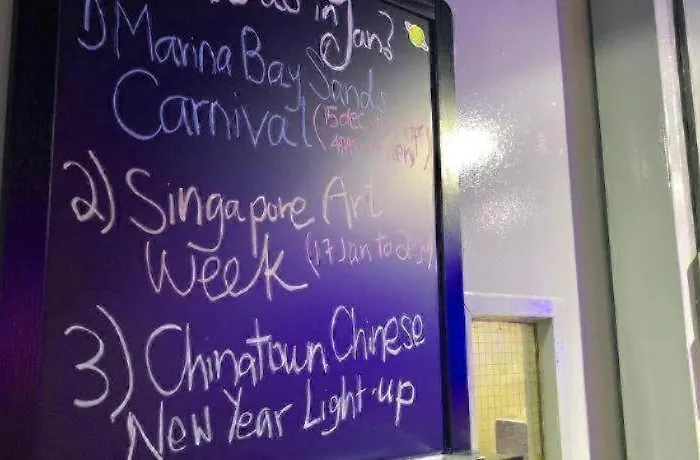 in Jan?
1) Marina Bay Sands
Carnival (15 dec
4PM
2) Singapore Art
Week (17 Jan to
3) Chinatown Chinese
New Year Light-up